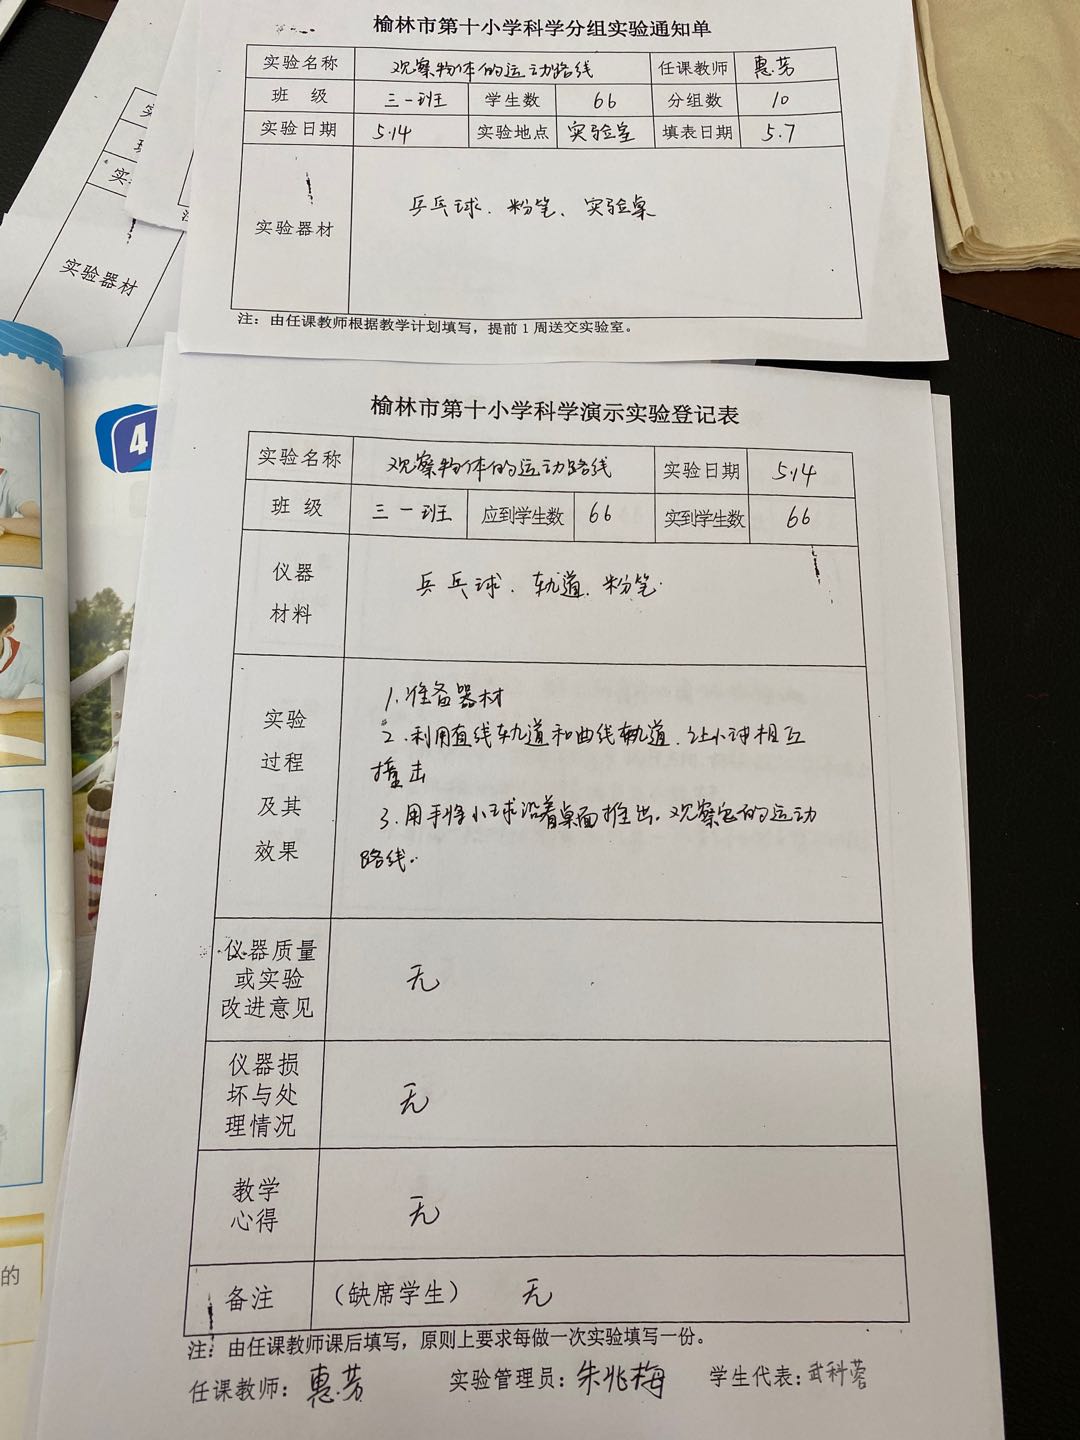 榆林市第十小学科学分组实验通知单
实验名称 观察物体的运动路线 任课教师 惠芳
班 级 三一班 学生数 66 分组数 10
实验日期 5.14 实验地点 实验室 填表日期 5.7
实验器材 乒乓球、粉笔、实验桌
注：由任课教师根据教学计划填写，提前1周送交实验室。
实验器材
4
榆林市第十小学科学演示实验登记表
实验名称 观察物体的运动路线 实验日期 5.14
班 级 三一班 应到学生数 66 实到学生数 66
仪器
材料
乒乓球、轨道、粉笔.
实验
过程
及其
效果
1.准备器材
2.利用直线轨道和曲线轨道、让小球相互
撞击
3.用手将小球沿着桌面推出.观察它的运动
路线.
仪器质量
或实验
改进意见
无
仪器损
坏与处
理情况
无
教学
心得
无
备注 （缺席学生） 无
注：由任课教师课后填写，原则上要求每做一次实验填写一份。
任课教师：惠芳 实验管理员：朱兆梅 学生代表：武科蓉
的